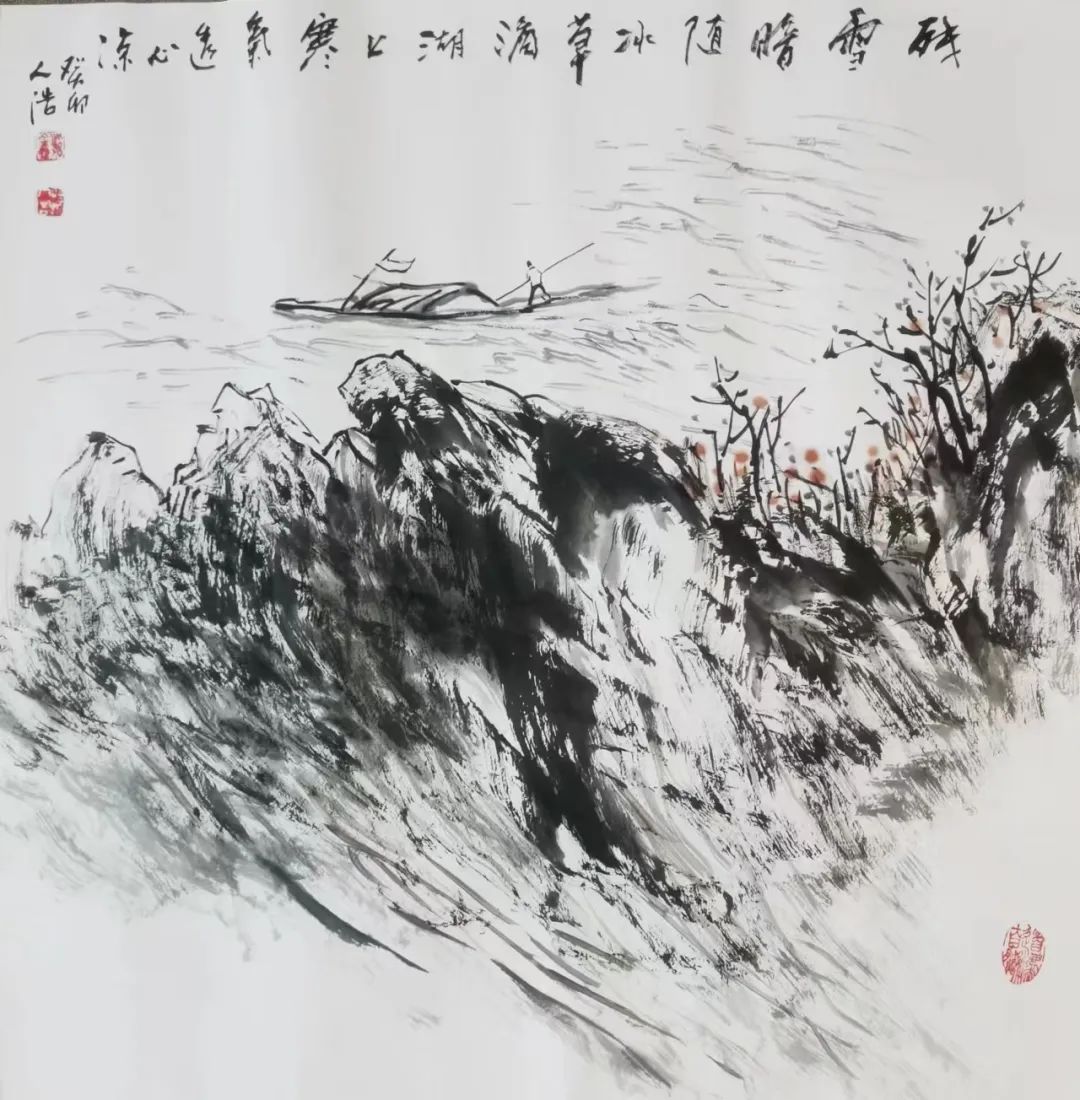 残雪暗随冰草滴湖上寒氣透心涼
癸卯
人浩